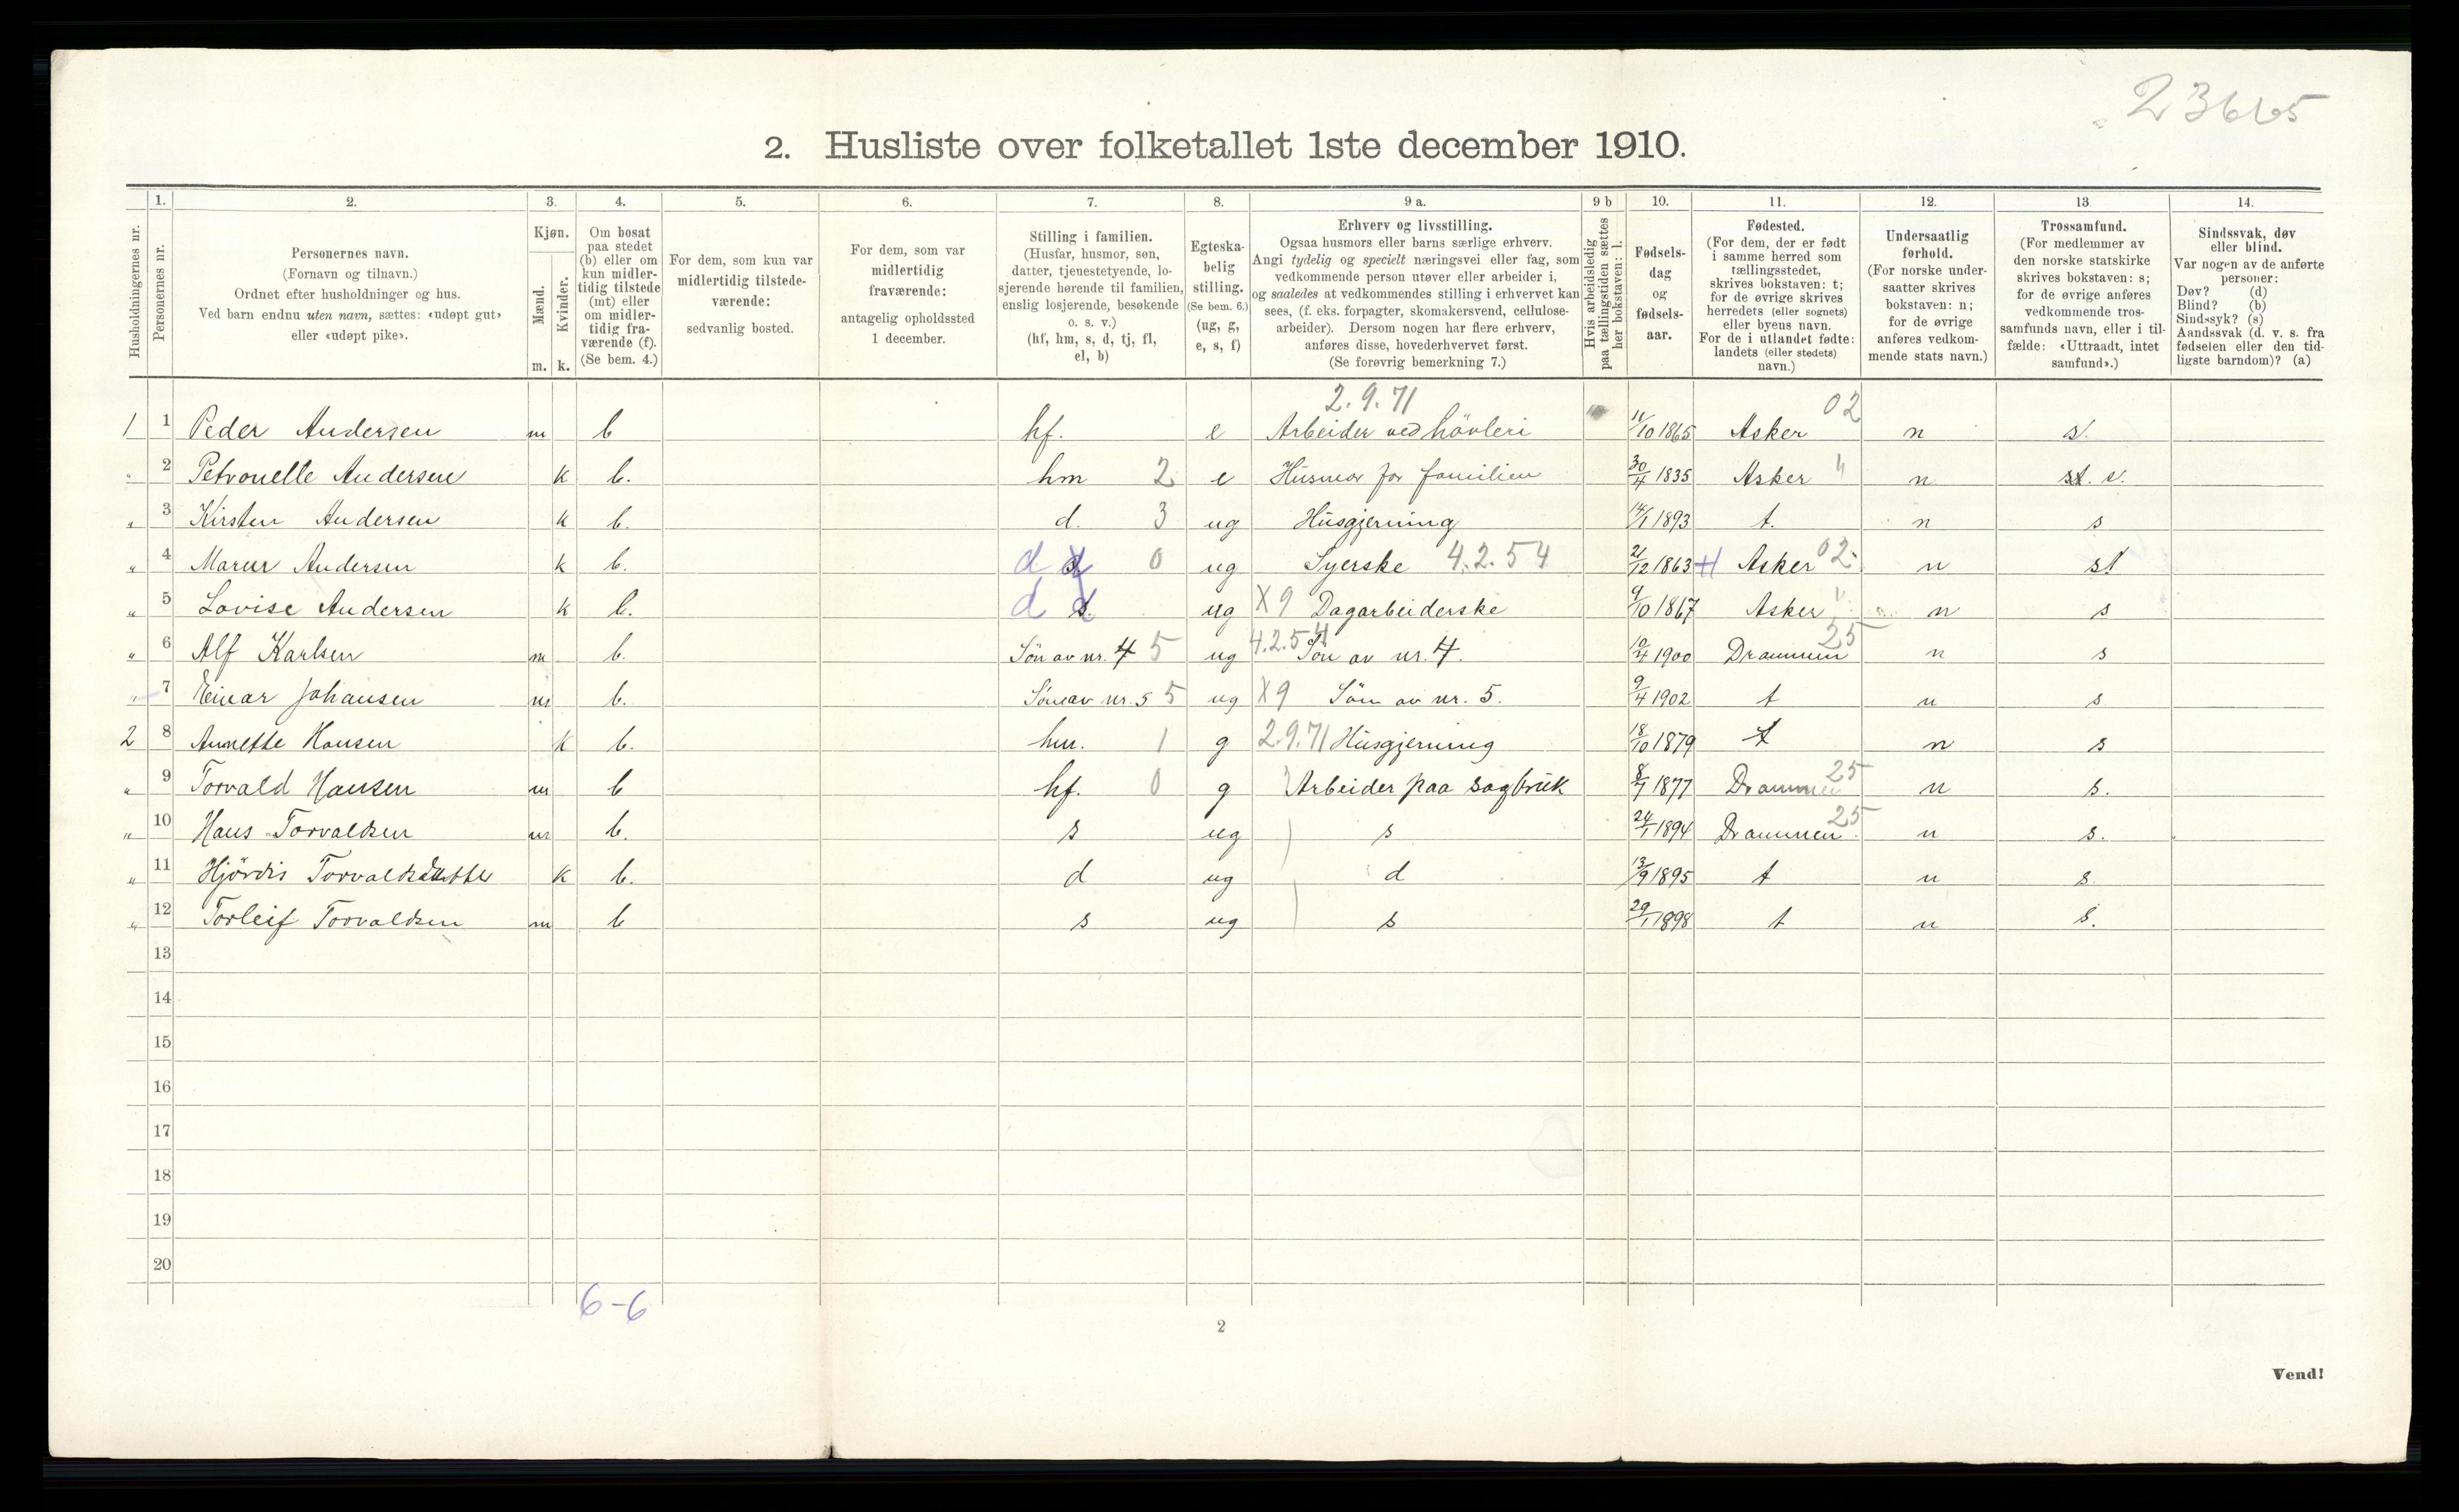 23665
2. Husliste over folketallet 1ste december 1910.
Husholdningernes nr.
1. Personernes nr.
2. Personernes navn. (Fornavn og tilnavn.) Ordnet efter husholdninger og hus. Ved barn endnu uten navn, sættes: «udøpt gut» eller «udøpt pike».
3. Kjøn. Mænd. m. Kvinder. k.
4. Om bosat paa stedet (b) eller om kun midlertidig tilstede (mt) eller om midlertidig fraværende (f). (Se bem. 4.)
5. For dem, som kun var midlertidig tilstedeværende: sedvanlig bosted.
6. For dem, som var midlertidig fraværende: antagelig opholdssted 1 december.
7. Stilling i familien. (Husfar, husmor, søn, datter, tjenestetyende, losjerende hørende til familien, enslig losjerende, besøkende o. s. v.) (hf, hm, s, d, tj, fl, el, b)
8. Egteskabelig stilling. (Se bem. 6.) (ug, g, e, s, f)
9 a. Erhverv og livsstilling. Ogsaa husmors eller barns særlige erhverv. Angi tydelig og specielt næringsvei eller fag, som vedkommende person utøver eller arbeider i, og saaledes at vedkommendes stilling i erhvervet kan sees, (f. eks. forpagter, skomakersvend, cellulosearbeider). Dersom nogen har flere erhverv, anføres disse, hovederhvervet først. (Se forøvrig bemerkning 7.)
9 b Hvis arbeidsledig paa tællingstiden sættes her bokstaven: l.
10. Fødselsdag og fødselsaar.
11. Fødested. (For dem, der er født i samme herred som tællingsstedet, skrives bokstaven: t; for de øvrige skrives herredets (eller sognets) eller byens navn. For de i utlandet fødte: landets (eller stedets) navn.)
12. Undersaatlig forhold. (For norske undersaatter skrives bokstaven: n; for de øvrige anføres vedkommende stats navn.)
13 Trossamfund. (For medlemmer av den norske statskirke skrives bokstaven: s; for de øvrige anføres vedkommende trossamfunds navn, eller i tilfælde: «Uttraadt, intet samfund».)
14. Sindssvak, døv eller blind. Var nogen av de anførte personer: Døv? (d) Blind? (b) Sindssyk? (s) Aandssvak (d. v. s. fra fødselen eller den tidligste barndom)? (a)
2.9.71 02
1 1 Peder Andersen m b hf. e Arbeider ved hövleri 11/10 1865 Asker n s.
" 2 Petronelle Andersen k b. hm 2 e Husmor for familien 30/4 1835 Asker " n st. s.
" 3 Kirsten Andersen k b. d. 3 ug Husgjerning 14/1 1893 t. n s
" 4 Maren Andersen k b. d 0 ug Syerske 4.2.54 21/12 1863 Asker 02 n st
" 5 Lovise Andersen k b. d s. ug X9 Dagarbeiderske 9/10 1867 Asker " n s
" 6 Alf Karlsen m b. Sön av nr. 4 5 ug 4.2.54 Sön av nr. 4. 10/4 1900 Drammen 25 n s
" 7 Einar Johansen m b. Sön av nr. 5 5 ug X9 Sön av nr. 5. 9/4 1902 t n s
2 8 Annette Hansen k b. hm. 1 g 2.9.71 Husgjerning 18/10 1879 t n s
" 9 Torvald Hansen m b hf. 0 g Arbeider paa sagbruk 8/7 1877 Drammen 25 n s.
" 10 Hans Torvaldsen m b. s ug s 24/1 1894 Drammen 25 n s.
" 11 Hjördis Torvaldsdatter k b. d ug d 13/9 1895 t n s.
" 12 Torleif Torvaldsen m b s ug s 29/1 1898 t n s.
13
14
15
16
17
18
19
20
6-6
2
Vend!